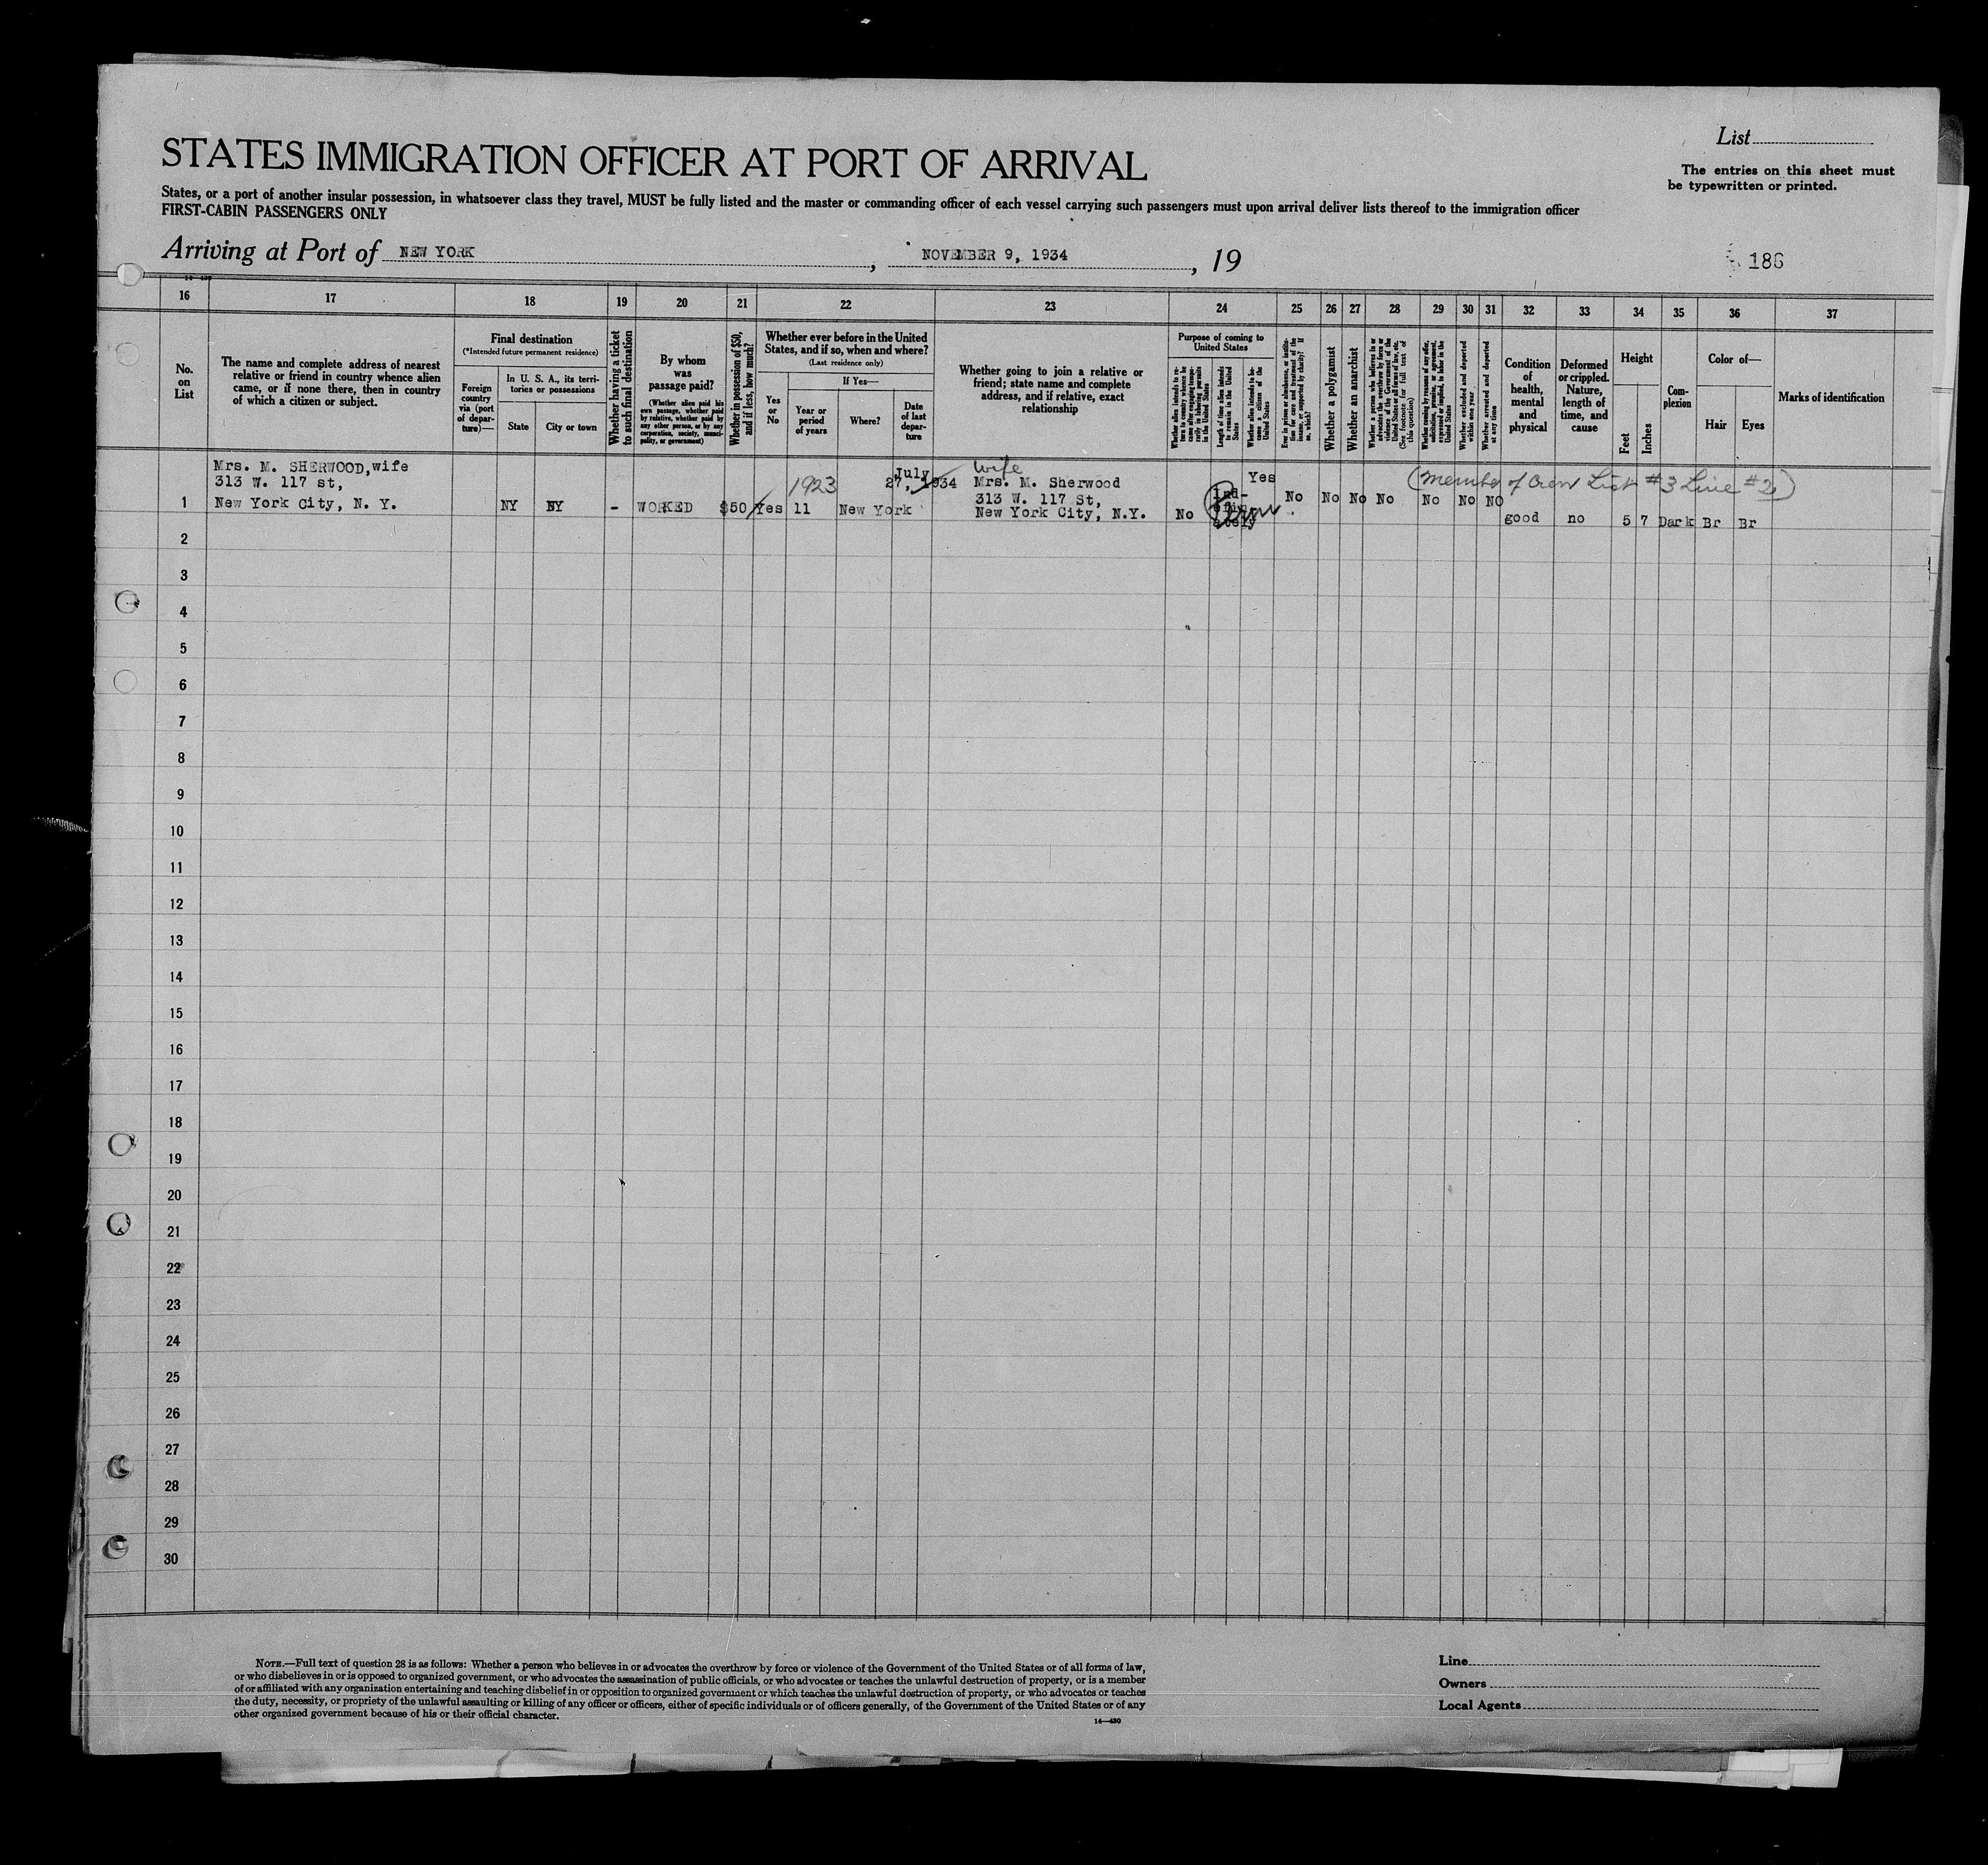 List
STATES IMMIGRATION OFFICER AT PORT OF ARRIVAL
The entries on this sheet must
be typewritten or printed.
States, or a port of another insular possession, in whatsoever class they travel, MUST be fully listed and the master or commanding officer of each vessel carrying such passengers must upon arrival deliver lists thereof to the immigration officer
FIRST-CABIN PASSENGERS ONLY
Arriving at Port of NEW YORK, NOVEMBER 9, 1934, 19
186
16 17 18 19 20 21 22 23 24 25 26 27 28 29 30 31 32 33 34 35 36 37
No.
on
List
The name and complete address of nearest
relative or friend in country whence alien
came, or if none there, then in country
of which a citizen or subject.
Final destination
(*Intended future permanent residence)
Foreign
country
via (port
of depar-
ture)—
In U. S. A., its terri-
tories or possessions
State
City or town
Whether having a ticket
to such final destination
By whom
was
passage paid?
(Whether alien paid his
own passage, whether paid
by relative, whether paid by
any other person, or by any
corporation, society, munici-
pality, or government)
Whether in possession of $50,
and if less, how much?
Whether ever before in the United
States, and if so, when and where?
(Last residence only)
Yes
or
No
If Yes—
Year or
period
of years
Where?
Date
of last
depar-
ture
Whether going to join a relative or
friend; state name and complete
address, and if relative, exact
relationship
Purpose of coming to
United States
Whether alien intends to re-
turn to country whence he
came after engaging tempo-
rarily in laboring pursuits
in the United States
Length of time alien intends
to remain in the United
States
Whether alien intends to be-
come a citizen of the
United States
Ever in prison or almshouse, or institu-
tion for care and treatment of the
insane, or supported by charity? If
so, which?
Whether a polygamist
Whether an anarchist
Whether a person who believes in or
advocates the overthrow by force or
violence of the Government of the
United States or all forms of law, etc.
(See footnote for full text of
this question)
Whether coming by reasons of any offer,
solicitation, promise, or agreement,
expressed or implied, to labor in the
United States
Whether excluded and deported
within one year
Whether arrested and deported
at any time
Condition
of
health,
mental
and
physical
Deformed
or crippled.
Nature,
length of
time, and
cause
Height
Feet
Inches
Com-
plexion
Color of—
Hair
Eyes
Marks of identification
Mrs. M. SHERWOOD, wife
313 W. 117 st,
New York City, N. Y.
1 NY NY - WORKED $50 Yes 11 New York
1923
July
27, 1934
wife
Mrs. M. Sherwood
313 W. 117 St,
New York City, N.Y.
No
Ind-
Yes
No No No No No No NO
(Member of Crew List #3 Line #2)
good no 5 7 Dark Br Br
2
3
4
5
6
7
8
9
10
11
12
13
14
15
16
17
18
19
20
21
22
23
24
25
26
27
28
29
30
NOTE.—Full text of question 28 is as follows: Whether a person who believes in or advocates the overthrow by force or violence of the Government of the United States or of all forms of law,
or who disbelieves in or is opposed to organized government, or who advocates the assassination of public officials, or who advocates or teaches the unlawful destruction of property, or is a member
of or affiliated with any organization entertaining and teaching disbelief in or opposition to organized government or which teaches the unlawful destruction of property, or who advocates or teaches
the duty, necessity, or propriety of the unlawful assaulting or killing of any officer or officers, either of specific individuals or of officers generally, of the Government of the United States or of any
other organized government because of his or their official character.
14—430
Line
Owners
Local Agents